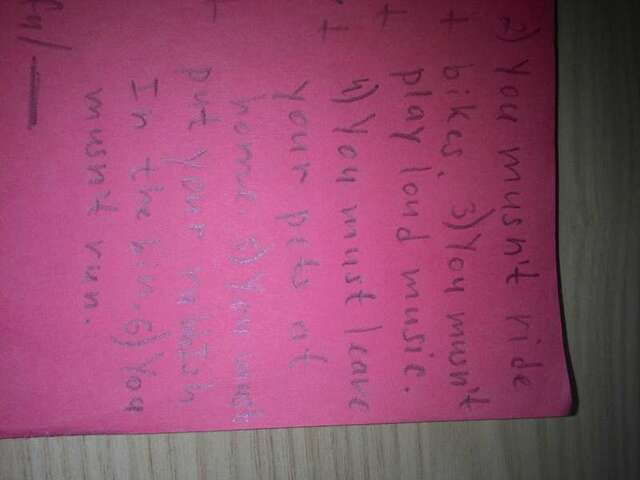 2) You musn't ride
+ bikes. 3) You musn't
+ play loud music.
+ 4) You must leave
your pets at
home 5) You must
+ put your rubbish
In the bin. 6) You
musn't run.